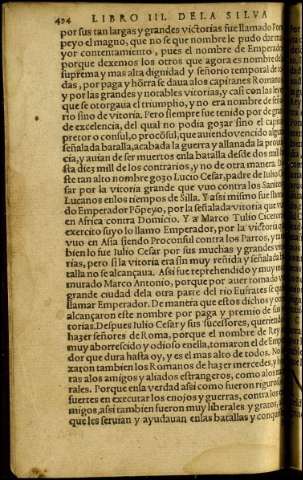 404 LIBRO III. DE LA SILVA
por sus tan largas y grandes victorias fue llamado Pom
peyo el magno, que no se que nombre le pudo dar ma
yor contentamiento, pues el nombre de Emperador
porque dexemos los otros que agora es nombre de
suprema y mas alta dignidad y señorio temporal de
das, por paga y hõrra se daua alos capitanes Romanos
y por las grandes y notables vitorias, y casi con las leyes
que se otorgaua el triumpho, y no era nombre de seño
rio sino de vitoria. Pero siempre fue tenido por de gran
de excelencia, del qual no podia gozar sino el capitan
pretor o consul, o proconsul, que auiendo vencido alguna
señalada batalla, acabada la guerra y allanada la prouin
cia, y auian de ser muertos enla batalla desde dos mil ha
sta diez mil de los contrarios, y no de otra manera. De
ste tan alto nombre gozo Lucio Cesar, padre de Iulio Ce
sar por la vitoria grande que vuo contra los Santos
Lucanos enlos tiempos de Silla. Y assi mismo fue llama
do Emperador Põpeyo, por la señalada vitoria que vuo
en Africa contra Domicio. Y a Marco Tulio Ciceron
exercito suyo lo llamo Emperador, por la victoria que
vuo en Asia siendo Proconsul contra los Parros, y tam
bien lo fue Iulio Cesar por sus muchas y grandes victo
rias, pero si la vitoria era sin muy reñida y señalada ba
talla no se alcançaua. Assi fue reprehendido y muy mur
murado Marco Antonio, porque por auer tomado vna
grande ciudad dela otra parte del rio Eufrates se quiso
llamar Emperador. De manera que estos dichos y otros
alcançaron este nombre por paga y premio de sus vi
torias. Despues Iulio Cesar y sus sucessores, queriendose
hazer señores de Roma, porque el nombre de Rey era
muy aborrescido y odioso enella, tomaron el de Empera
dor que dura hasta oy, y es el mas alto de todos.
xaron tambien los Romanos de hazer mercedes, y hon
ras alos amigos y aliados estrangeros, como alos natu
rales. Porque enla verdad assi como fueron rigurosos y
fuertes en executar los enojos y guerras, contra los ene
migos, assi tambien fueron muy liberales y gratos, a los
que les seruian y ayudauan enlas batallas y conquistas